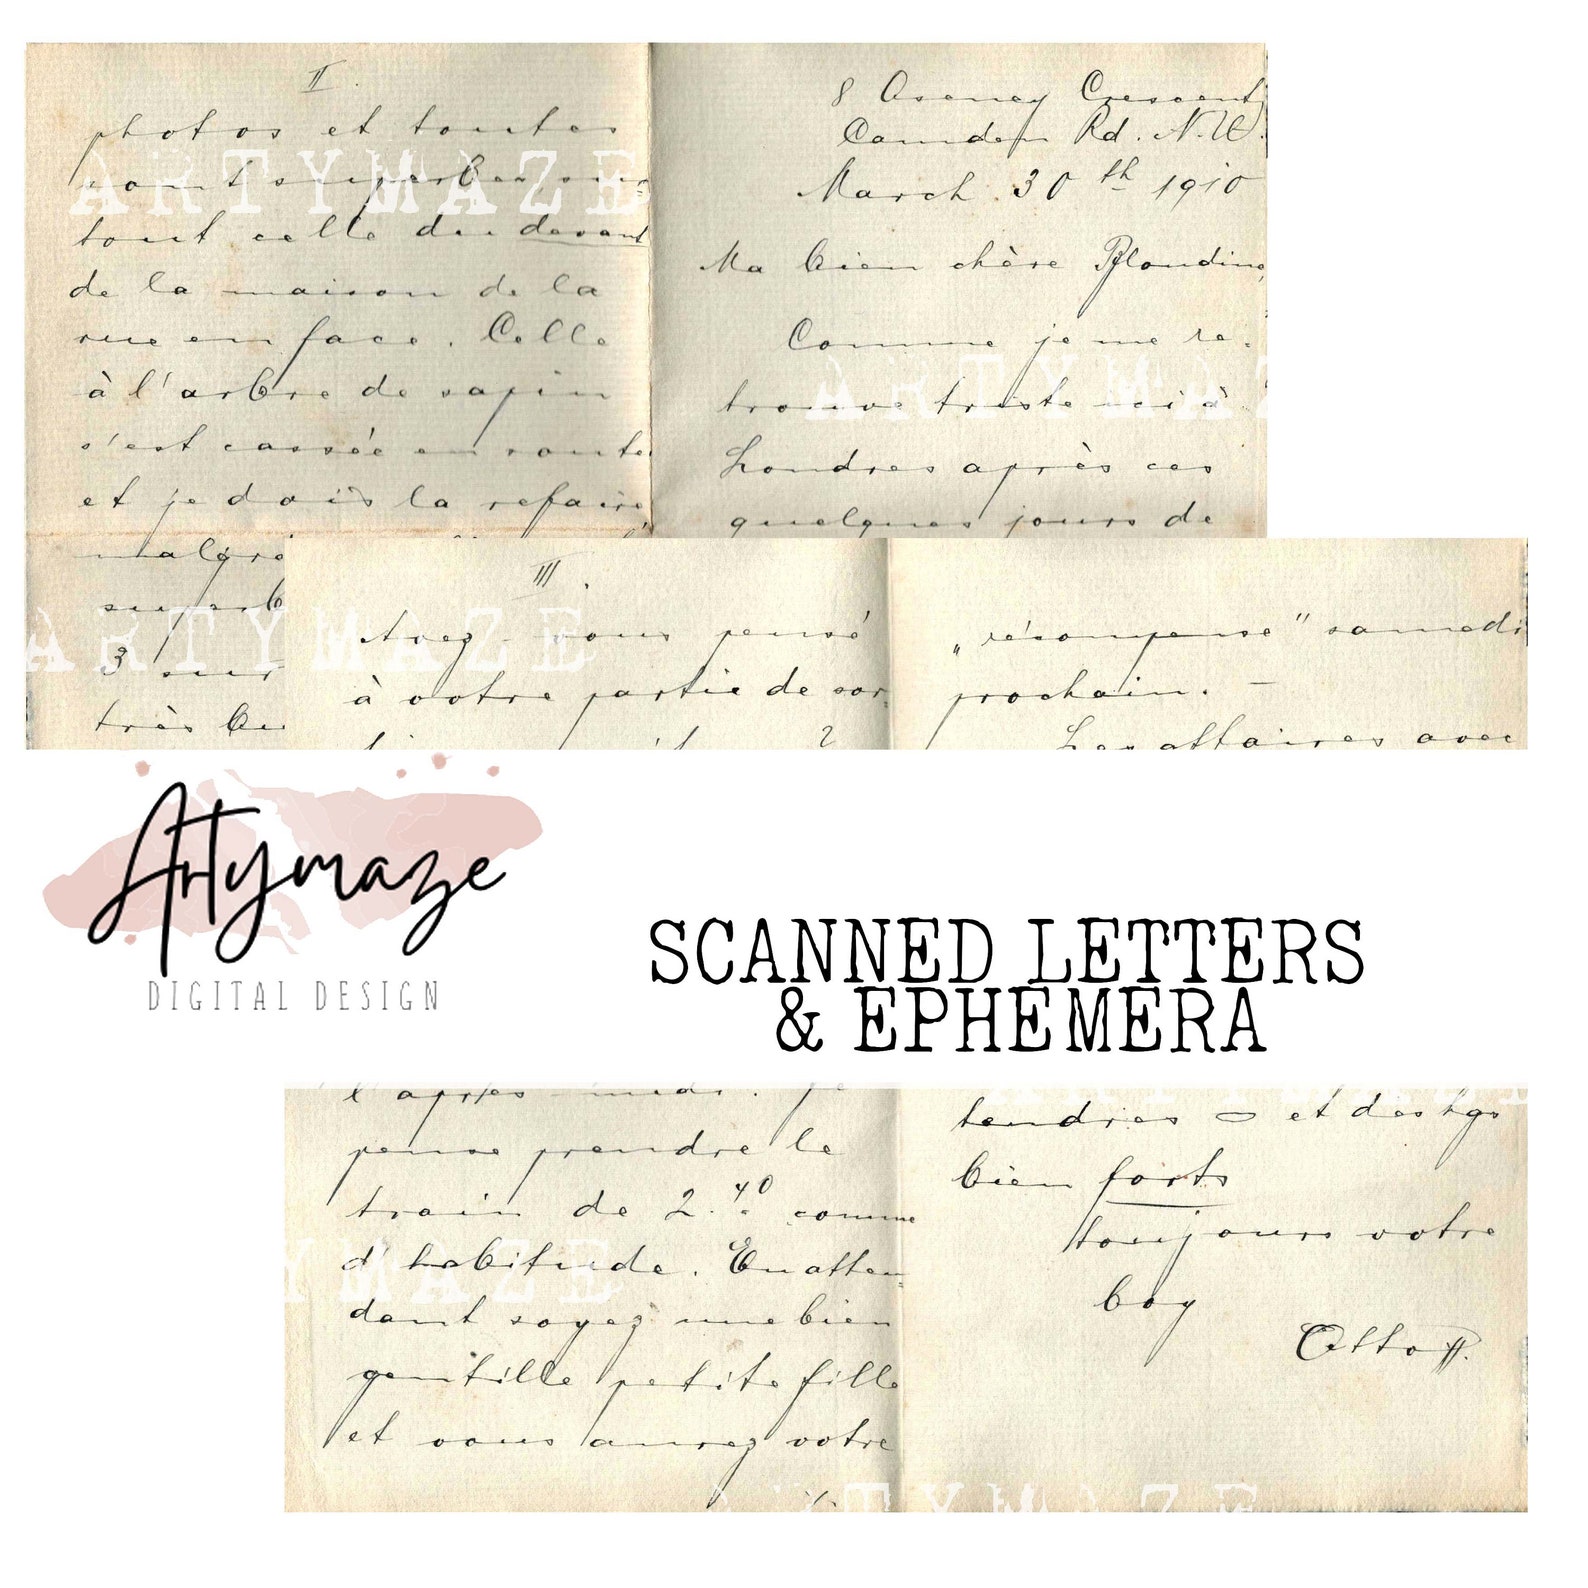 II.
photos et toutes
sont superbes sur-
tout celle du devant
de la maison de la
rue en face. Celle
à l'arbre de sapin
s'est cassée en route
et je dois la refaire
malgré
superb
3 sur
très
8 Crescent
Camden Rd. N.W.
March 30th 1910
Ma bien chère
Comme je me re-
trouve triste ici à
Londres après ces
quelques jours de
III.
Avez-vous pensé
à votre partie de sor-
?
„récompense" samedi
prochain. —
Les affaires avec
Artymaze
DIGITAL DESIGN
SCANNED LETTERS
& EPHEMERA
l'après-midi. Je
pense prendre le
train de 2.40 comme
d'habitude. En atten-
dant soyez une bien
gentille petite fille
et vous aurez votre
tendres et des
bien forts
toujours votre
boy
Otto P.
ARTYMAZE
ARTYMAZ
ARTYMAZE
YMAZE
ARTYMAZE